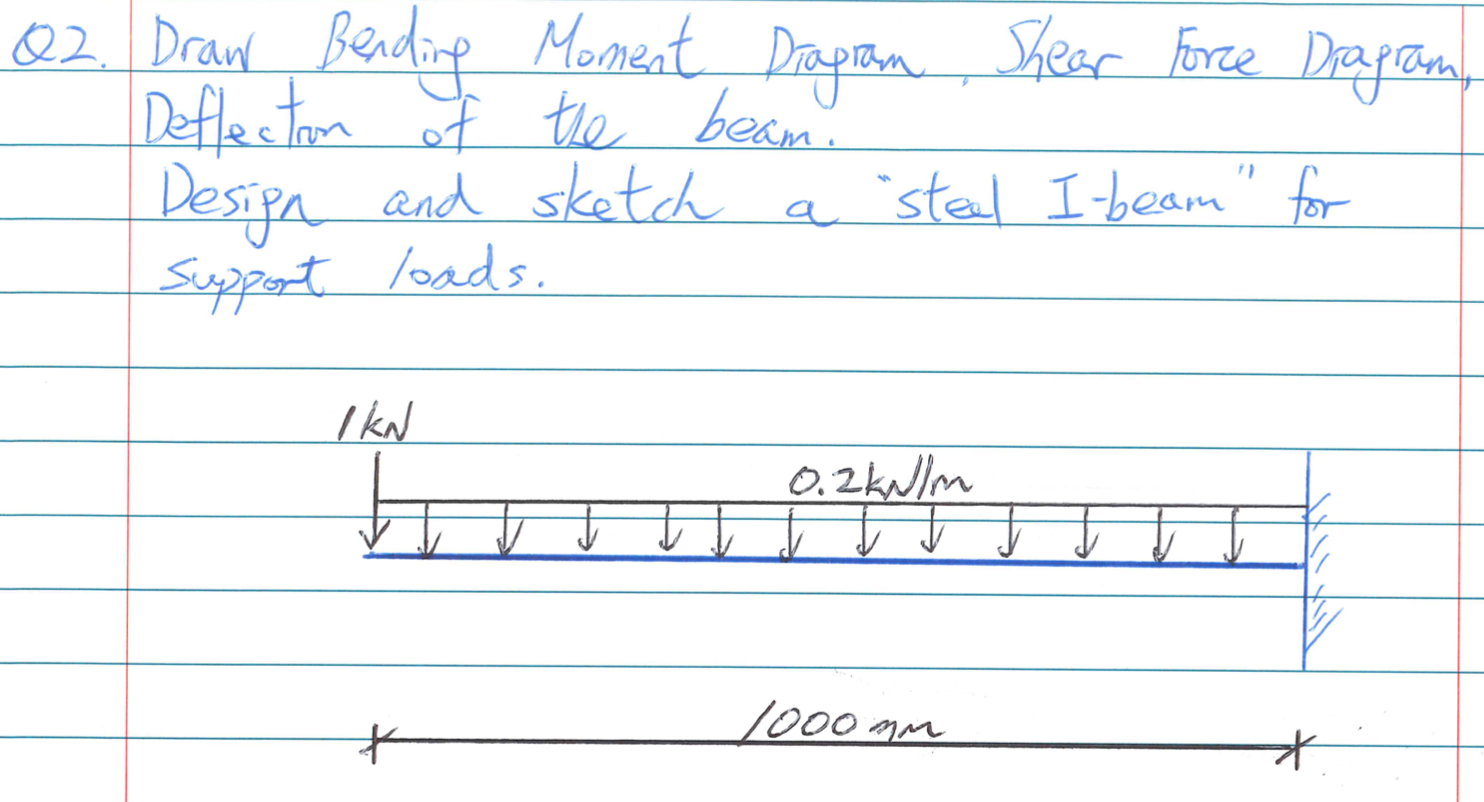 Q2. Draw Bending Moment Diagram, Shear Force Diagram,
Deflection of the beam.
Design and sketch a "steel I-beam" for
support loads.
1kN
0.2kN/m
1000mm